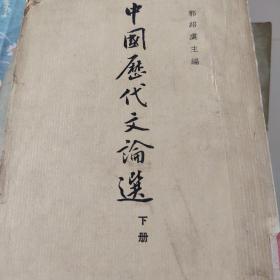 郭紹虞主編
中國歷代文論選
下册